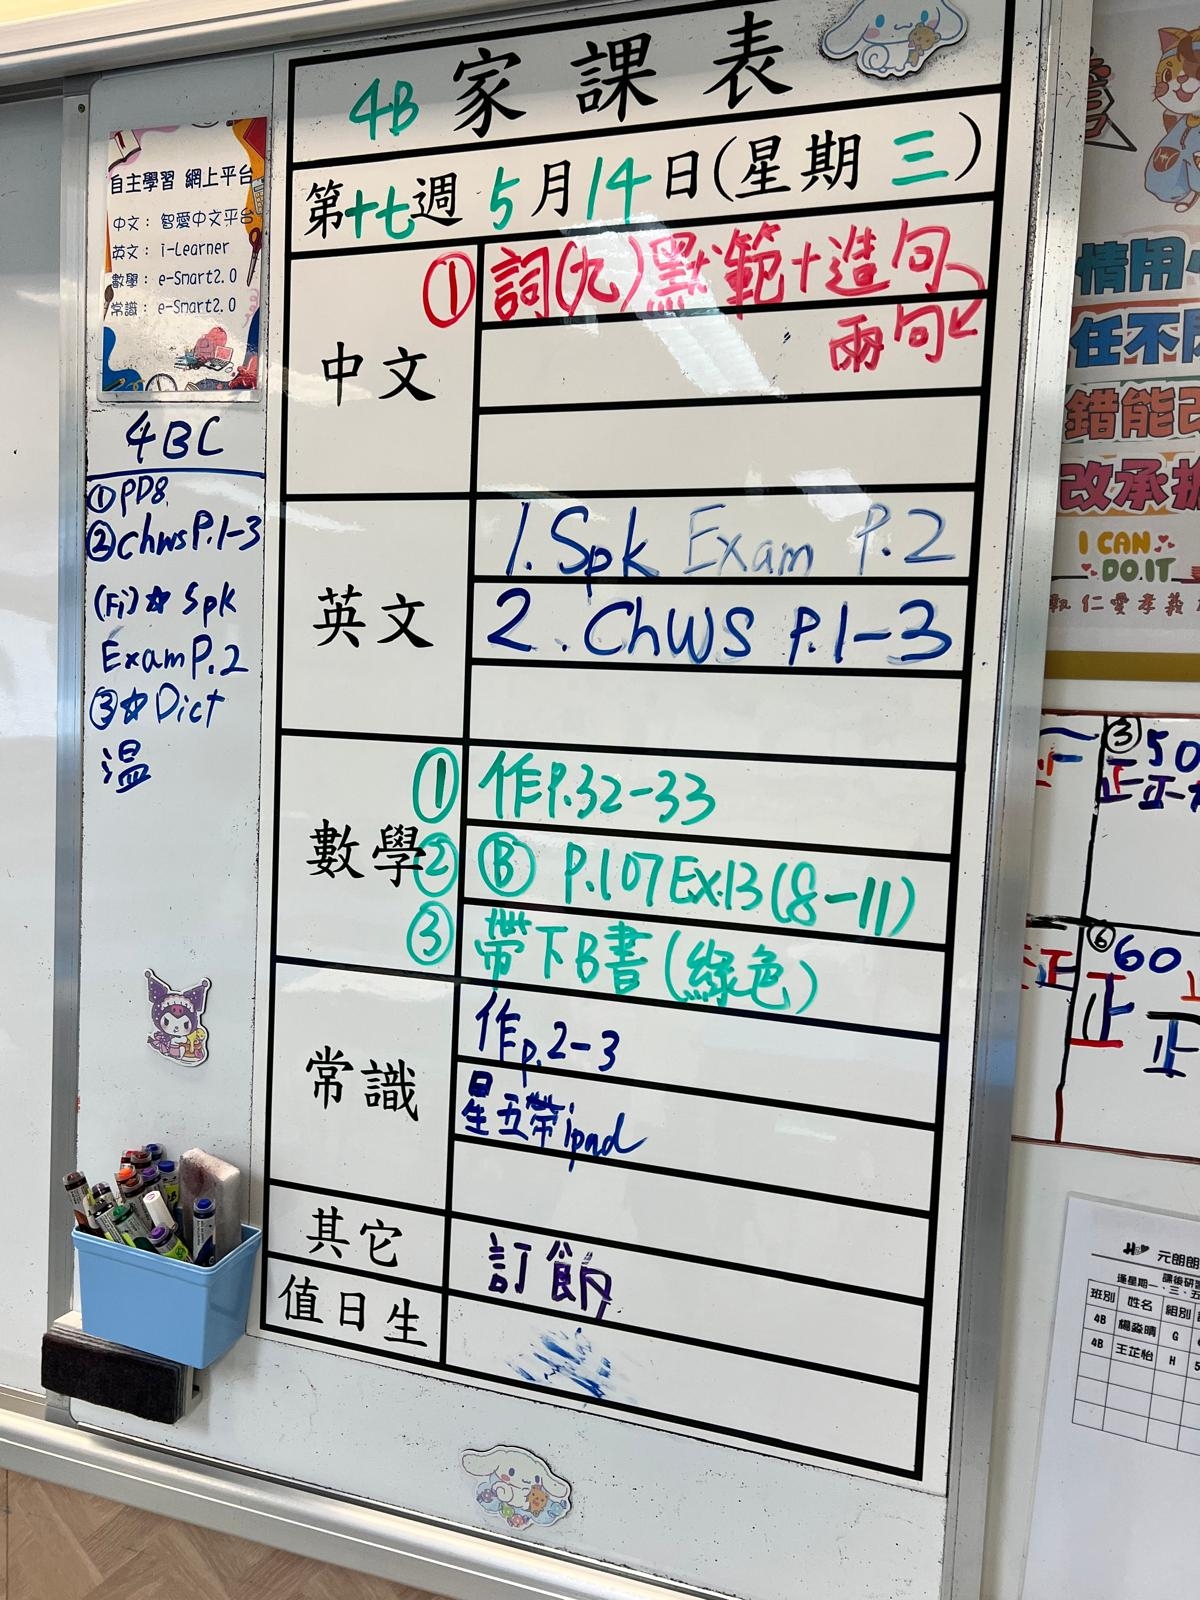 4B 家課表
第十七週 5月14日(星期三)
中文
① 詞(九)默範+造句
兩句
英文
1. Spk Exam P.2
2. ChWS P.1-3
數學
① 作P.32-33
② Ⓑ P.107 Ex.13 (8-11)
③ 帶下B書(綠色)
常識
作p.2-3
星五帶ipad
其它
訂飯
值日生
自主學習 網上平台
中文: 智愛中文平台
英文: i-Learner
數學: e-Smart2.0
常識: e-Smart2.0
4BC
① PD8
② ChWS P.1-3
(Fri)☆ Spk
Exam P.2
③☆ Dict
溫
情用
任不
錯能改
改承
I CAN
DO IT
仁愛孝義
③ 50
正
⑥ 60
正
元朗朗
逢星期一、三、五
課後研
班別 姓名 組別
4B 楊淼晴 G
4B 王芷怡 H 5